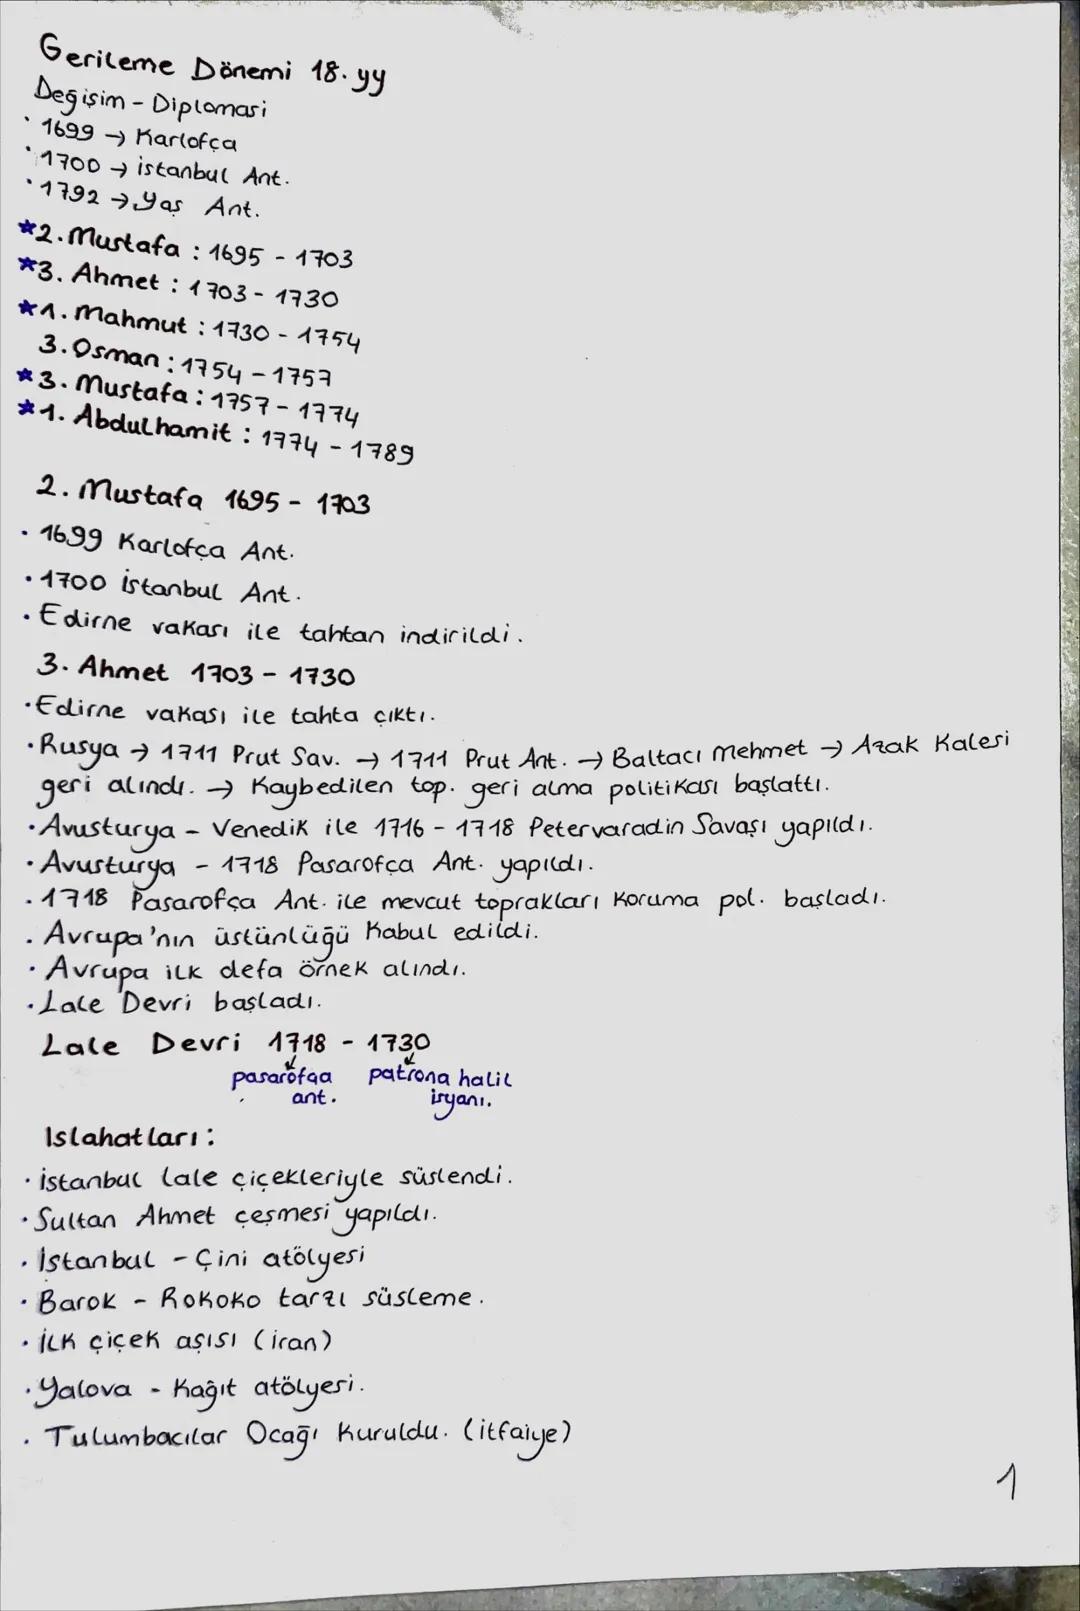 Gerileme Dönemi 18. yy
Değişim - Diplomasi
· 1699 → Karlofça
· 1700 → istanbul Ant.
· 1792 → Yaş Ant.
★2. Mustafa : 1695 - 1703
★3. Ahmet : 1703 - 1730
★1. Mahmut : 1730 - 1754
3. Osman : 1754 - 1757
★3. Mustafa : 1757 - 1774
★1. Abdulhamit : 1774 - 1789
2. Mustafa 1695 - 1703
· 1699 Karlofça Ant.
· 1700 İstanbul Ant.
· Edirne vakası ile tahtan indirildi.
3. Ahmet 1703 - 1730
· Edirne vakası ile tahta çıktı.
· Rusya → 1711 Prut Sav. → 1711 Prut Ant. → Baltacı Mehmet → Azak Kalesi
geri alındı. → Kaybedilen top. geri alma politikası başlattı.
· Avusturya - Venedik ile 1716 - 1718 Petervaradin Savaşı yapıldı.
· Avusturya - 1718 Pasarofça Ant. yapıldı.
· 1718 Pasarofça Ant. ile mevcut toprakları koruma pol. başladı.
· Avrupa'nın üstünlüğü kabul edildi.
· Avrupa ilk defa örnek alındı.
· Lale Devri başladı.
Lale Devri 1718 - 1730
pasarofça ant. patrona halil isyanı.
Islahatları :
· istanbul lale çiçekleriyle süslendi.
· Sultan Ahmet çeşmesi yapıldı.
· İstanbul - Çini atölyesi
· Barok - Rokoko tarzı süsleme.
· İlk çiçek aşısı (iran)
· Yalova - Kağıt atölyesi.
· Tulumbacılar Ocağı Kuruldu. (itfaiye)
1